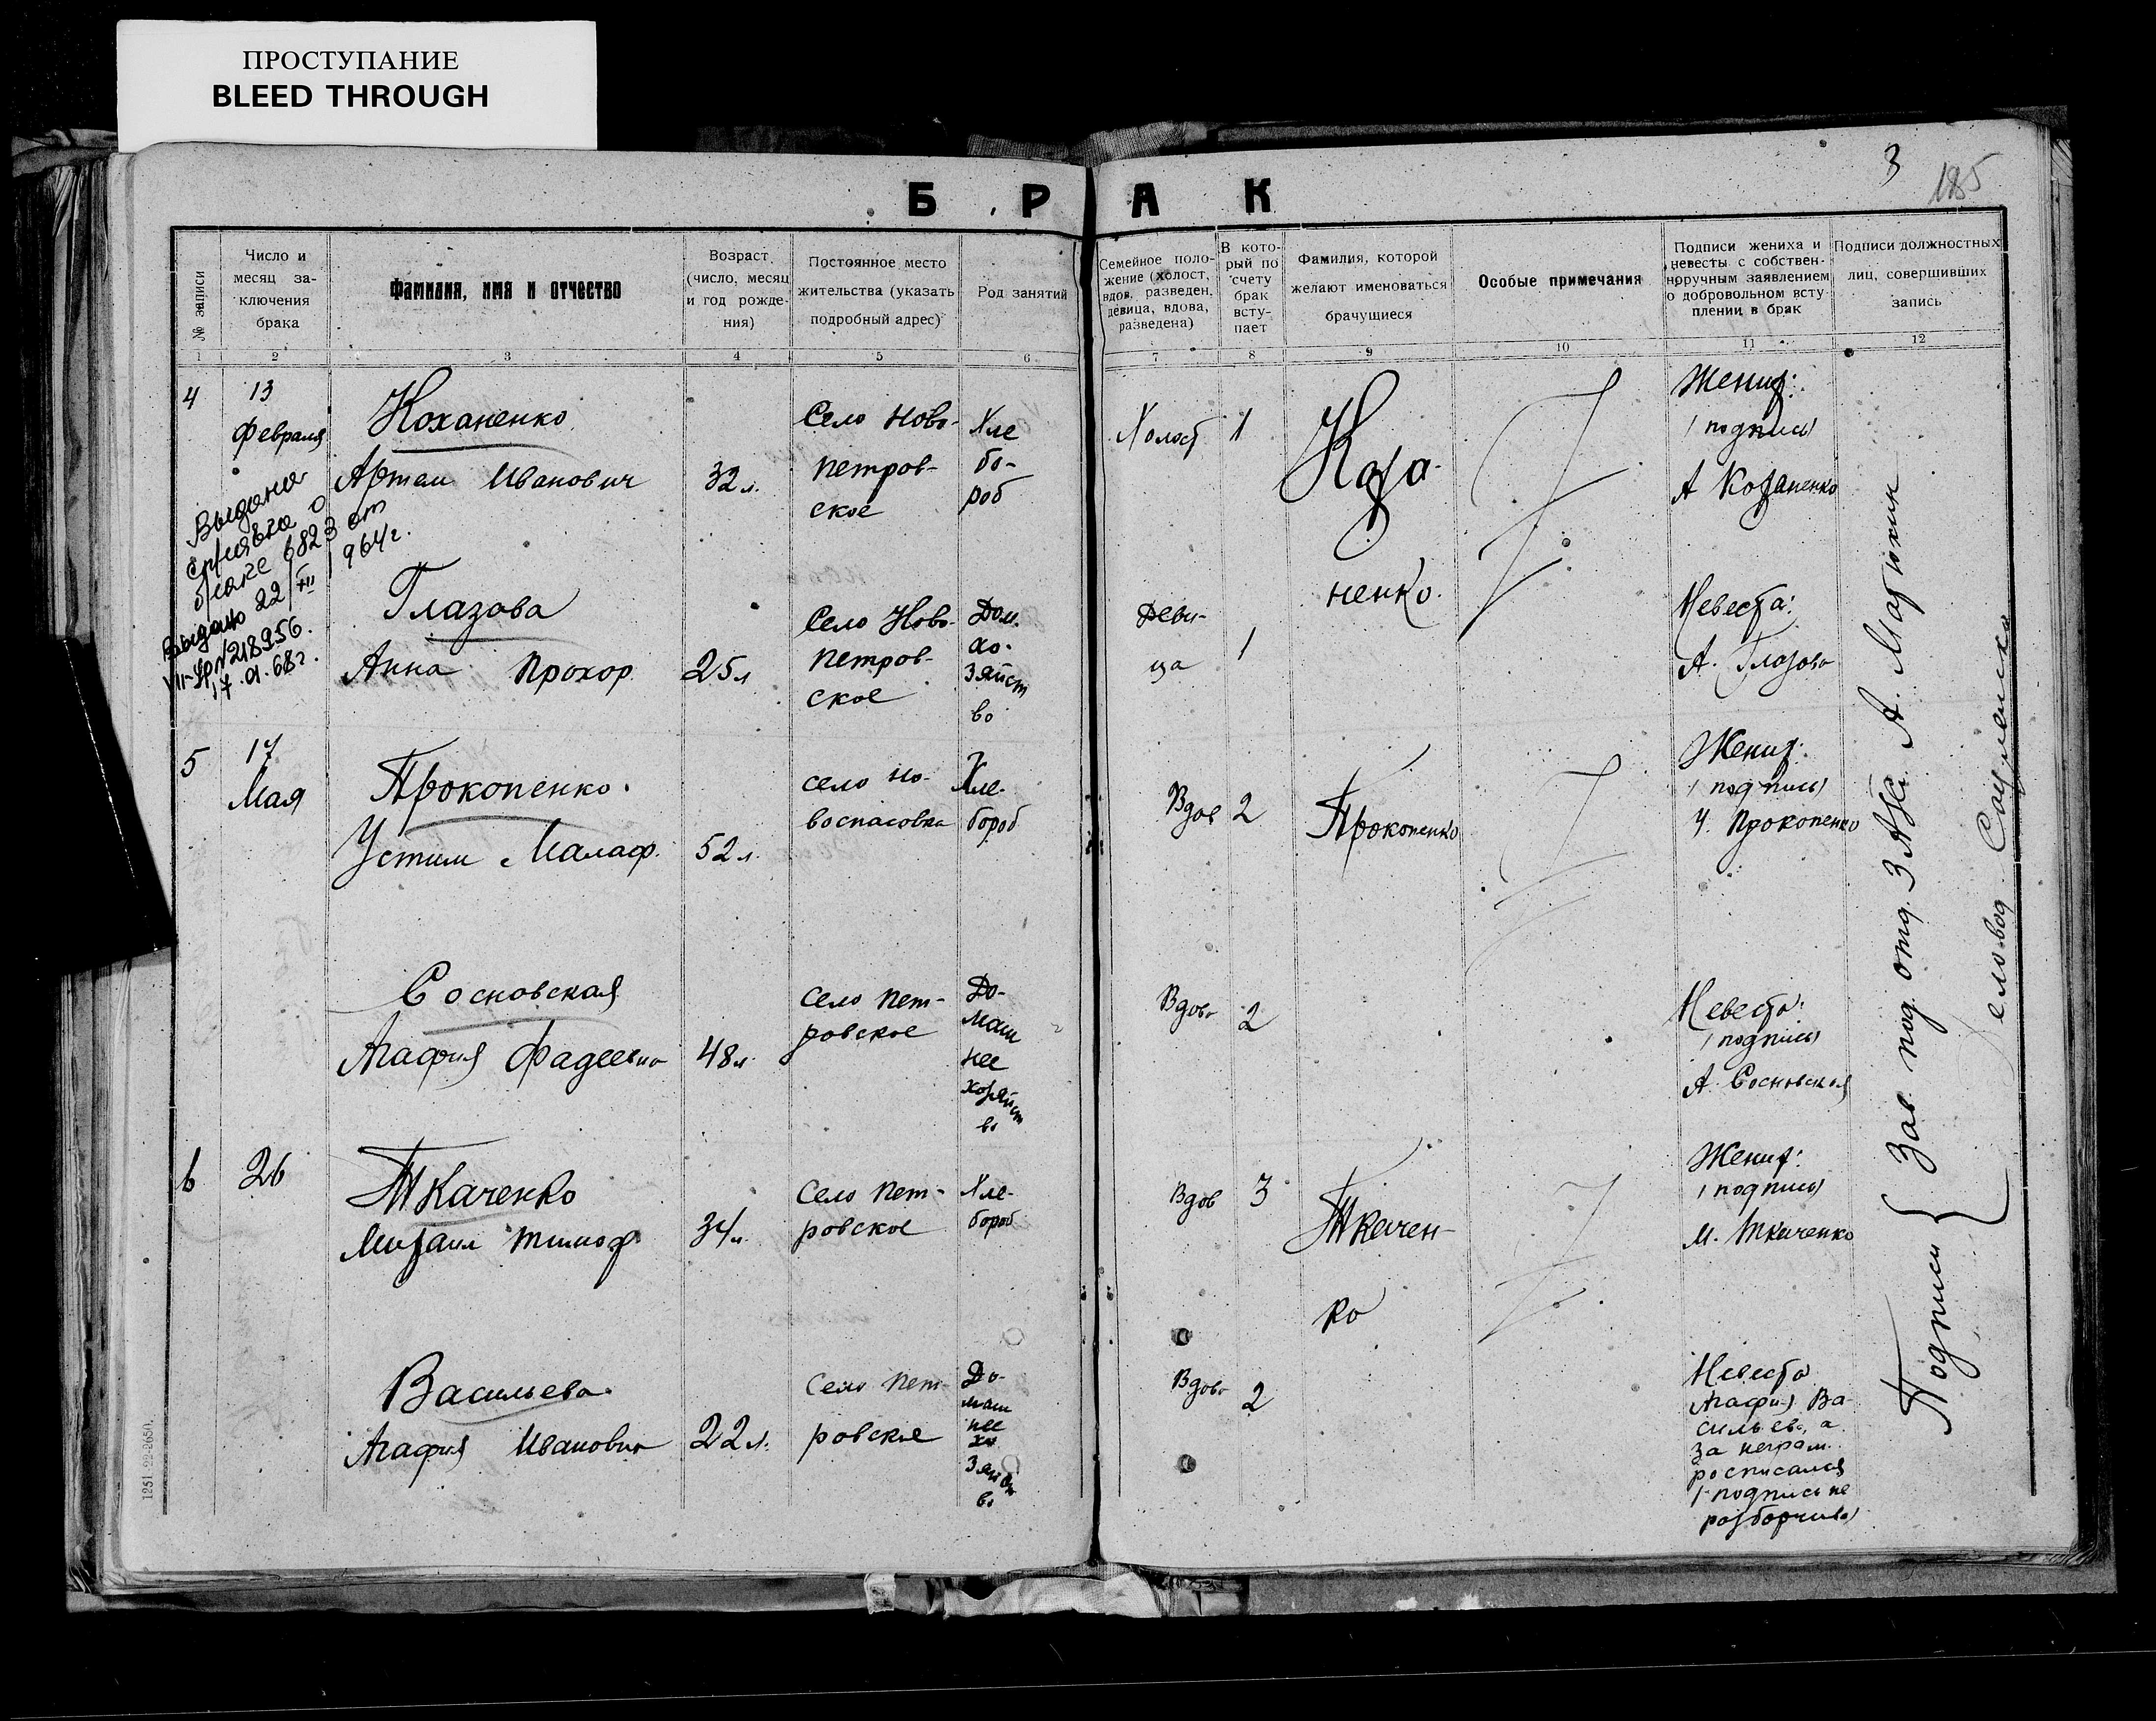 ПРОСТУПАНИЕ
BLEED THROUGH
3
185
Б Р А К
№ записи
Число и
месяц за-
ключения
брака
Фамилия, имя и отчество
Возраст
(число, месяц
и год рожде-
ния)
Постоянное место
жительства (указать
подробный адрес)
Род занятий
Семейное поло-
жение (холост,
вдов, разведен,
девица, вдова,
разведена)
В кото-
рый по
счету
брак
всту-
пает
Фамилия, которой
желают именоваться
брачущиеся
Особые примечания
Подписи жениха и
невесты с собствен-
норучным заявлением
о добровольном всту-
плении в брак
Подписи должностных
лиц, совершивших
запись
1 2 3 4 5 6 7 8 9 10 11 12
4
13
Февраля
Коханенко
Артем Иванович
32 л.
Село Ново-
петров-
ское
Хле
бо-
роб
Холост
1
Коха-
ненко.
Жених:
(подпись)
А Коханенко
Выдана
справка о
браке 6823 от
22/XII 964г.
Выдано
VII-УР № 218956.
17.01.68г.
Глазова
Анна Прохор.
25 л
Село Ново-
петров-
ское
Дом.
хо-
зяйст
во
Деви-
ца
1
Невеста:
А. Глазова
5
17
Мая
Прокопенко.
Устим Малаф.
52 л.
село Но-
воспасовка
Хле-
бороб
Вдов
2
Прокопенко
Жених:
(подпись)
У. Прокопенко
Сосновская
Агафия Фадеевна
48 л.
село Пет-
ровское
До-
маш
нее
хозяйст
во
Вдова
2
Невеста:
(подпись)
А. Сосновская
6
26
Ткаченко
Михаил Тимоф.
34 л.
Село Пет-
ровское
Хле-
бороб
Вдов
3
Ткачен-
ко
Жених:
(подпись)
М. Ткаченко
Васильева.
Агафия Ивановна
22 л.
Село Пет-
ровское
До-
маш
нее
хо
зяйст
во
Вдова
2
Невеста
Агафия Ва-
сильева, а
за неграм.
росписался
(подпись не
разборчива)
Подписи { Зав. под. отд. ЗАГС А.
1251 22-2650.